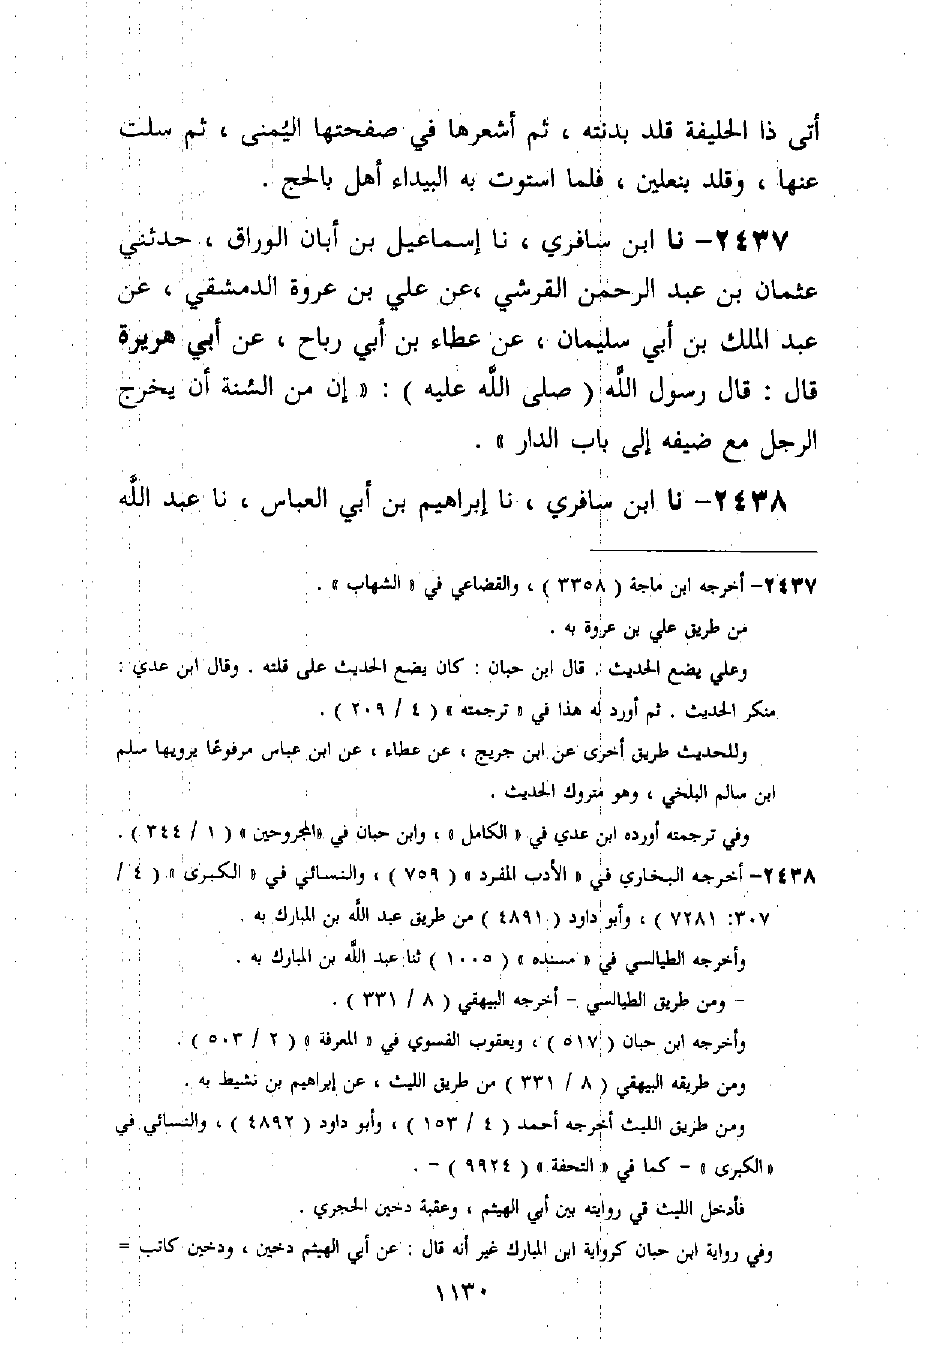 أتى ذا الحليفة قلد بدنته ، ثم أشعرها في صفحتها اليُمنى ، ثم سلت
عنها ، وقلد بنعلين ، فلما استوت به البيداء أهل بالحج .
٢٤٣٧- نا ابن سافري ، نا إسماعيل بن أبان الوراق ، حدثني
عثمان بن عبد الرحمن القرشي ،عن علي بن عروة الدمشقي ، عن
عبد الملك بن أبي سليمان ، عن عطاء بن أبي رباح ، عن أبي هريرة
قال : قال رسول اللَّه ( صلى اللَّه عليه ) : « إن من السُنة أن يخرج
الرجل مع ضيفه إلى باب الدار » .
٢٤٣٨- نا ابن سافري ، نا إبراهيم بن أبي العباس ، نا عبد اللَّه
٢٤٣٧- أخرجه ابن ماجة ( ٣٣٥٨ ) ، والقضاعي في « الشهاب » .
من طريق علي بن عروة به .
وعلي يضع الحديث . قال ابن حبان : كان يضع الحديث على قلته . وقال ابن عدي :
منكر الحديث . ثم أورد له هذا في « ترجمته » ( ٤ / ٢٠٩ ) .
وللحديث طريق أخرى عن ابن جريج ، عن عطاء ، عن ابن عباس مرفوعًا يرويها سلم
ابن سالم البلخي ، وهو متروك الحديث .
وفي ترجمته أورده ابن عدي في « الكامل » ، وابن حبان في «المجروحين » ( ١ / ٣٤٤ ) .
٢٤٣٨- أخرجه البخاري في « الأدب المفرد » ( ٧٥٩ ) ، والنسائي في « الكبرى » ( ٤ /
٣٠٧: ٧٢٨١ ) ، وأبو داود ( ٤٨٩١ ) من طريق عبد اللَّه بن المبارك به .
وأخرجه الطيالسي في « مسنده » ( ١٠٠٥ ) ثنا عبد اللَّه بن المبارك به .
- ومن طريق الطيالسي - أخرجه البيهقي ( ٨ / ٣٣١ ) .
وأخرجه ابن حبان ( ٥١٧ ) ، ويعقوب الفسوي في « المعرفة » ( ٢ / ٥٠٣ ) .
ومن طريقه البيهقي ( ٨ / ٣٣١ ) من طريق الليث ، عن إبراهيم بن نشيط به .
ومن طريق الليث أخرجه أحمد ( ٤ / ١٥٣ ) ، وأبو داود ( ٤٨٩٢ ) ، والنسائي في
« الكبرى » - كما في « التحفة » ( ٩٩٢٤ ) - .
فأدخل الليث في روايته بين أبي الهيثم ، وعقبة دخين الحجري .
وفي رواية ابن حبان كرواية ابن المبارك غير أنه قال : عن أبي الهيثم دخين ، ودخين كاتب =
١١٣٠